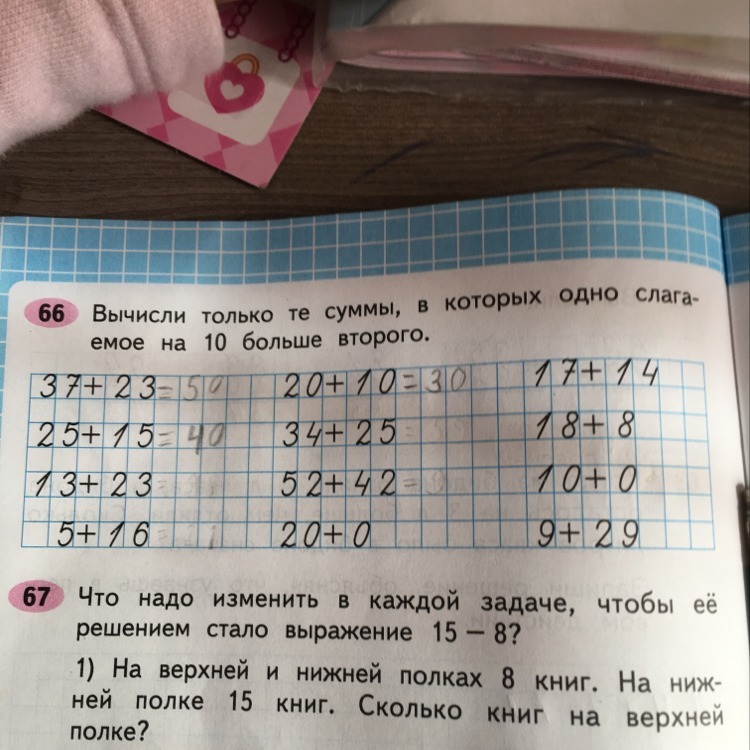 66 Вычисли только те суммы, в которых одно слага-
емое на 10 больше второго.
37+23=50 20+10=30 17+14
25+15=40 34+25 18+8
13+23= 52+42= 10+0
5+16= 20+0 9+29
67 Что надо изменить в каждой задаче, чтобы её
решением стало выражение 15 – 8?
1) На верхней и нижней полках 8 книг. На ниж-
ней полке 15 книг. Сколько книг на верхней
полке?